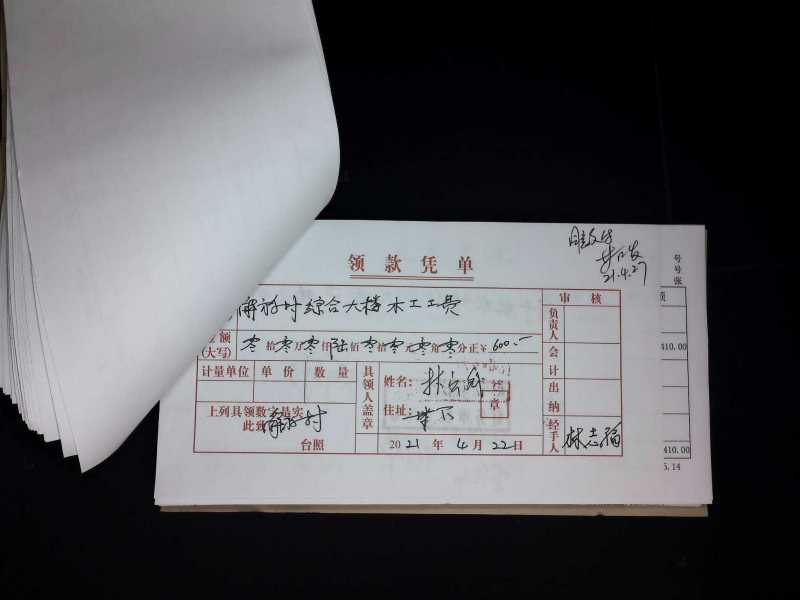 21.4.27
号
号
张
领款凭单
解放村综合大楼木工工费
审核
额
(大写)
零拾零万零仟陆佰零拾零元零角零分正¥600.-
负责人
410.00
计量单位 单价 数量
具领人盖章
姓名：林
签章
会计
上列具领数字是实
此致 解放村
住址：
出纳
台照
2021年4月22日
经手人 林志福
410.00
5.14